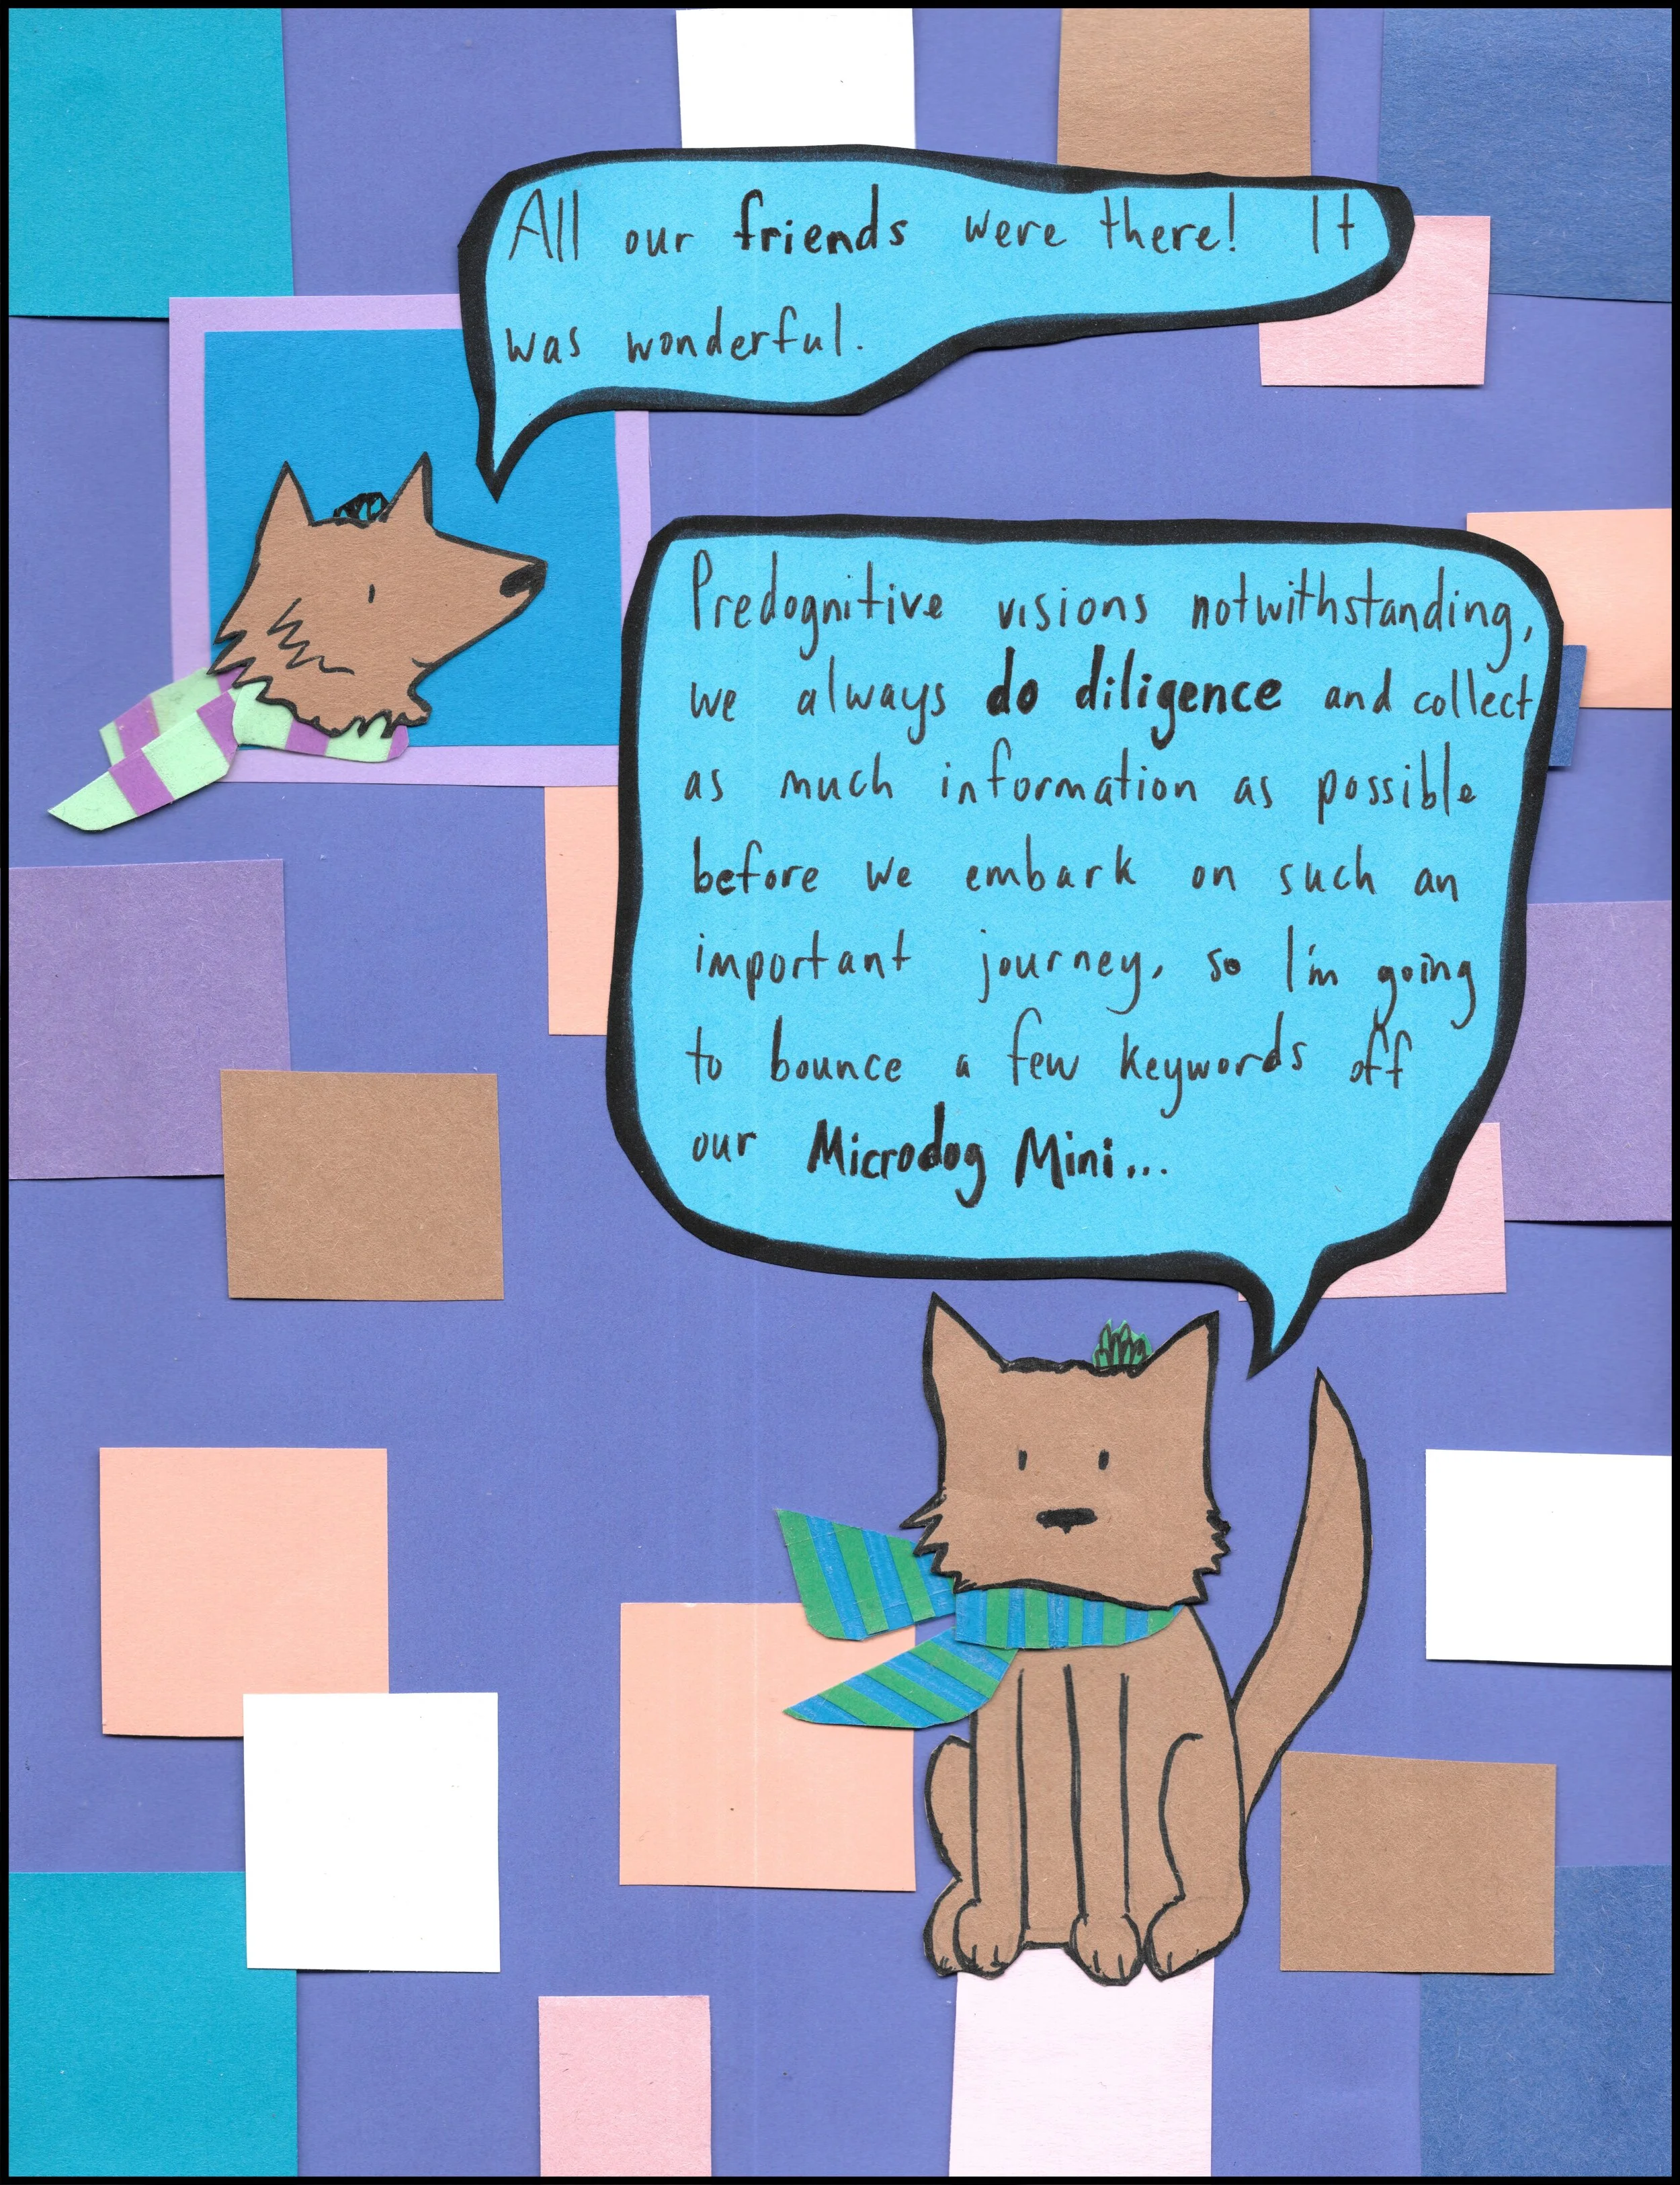 All our friends were there! It
was wonderful.
Predognitive visions notwithstanding,
we always do diligence and collect
as much information as possible
before we embark on such an
important journey, so I'm going
to bounce a few keywords off
our Microdog Mini...